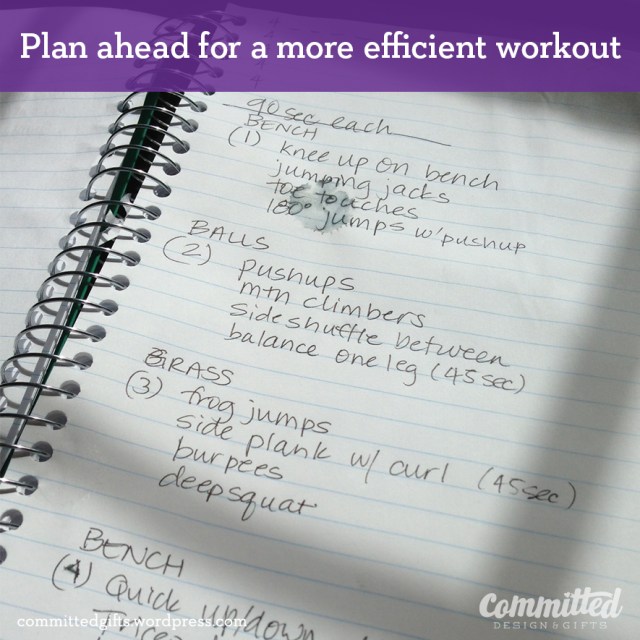 Plan ahead for a more efficient workout
90 sec each
BENCH
(1) knee up on bench
jumping jacks
toe touches
180 jumps w/pushup
BALLS
(2) pushups
mtn climbers
side shuffle between
balance one leg (45 sec)
GRASS
(3) frog jumps
side plank w/ curl (45 sec)
burpees
deep squat
BENCH
(4) Quick up/down
committedgifts.wordpress.com
Committed
DESIGN & GIFTS